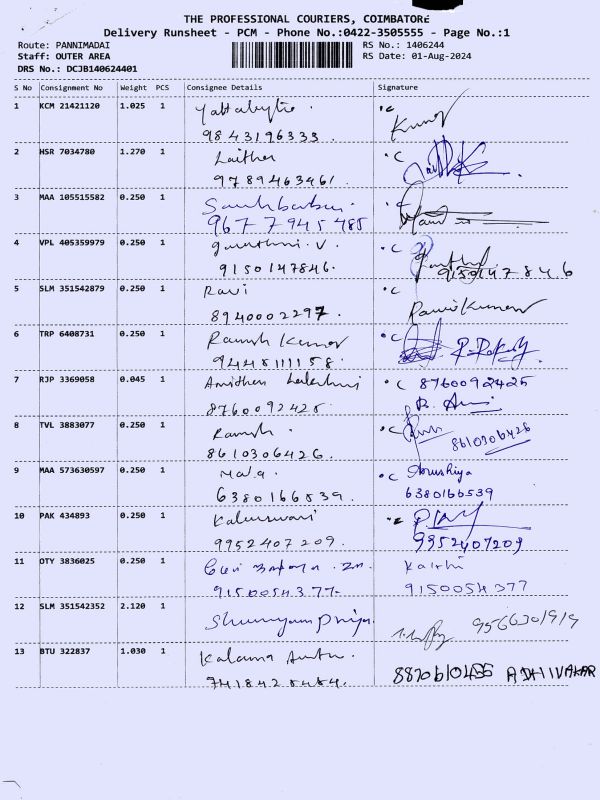 THE PROFESSIONAL COURIERS, COIMBATORE
Delivery Runsheet - PCM - Phone No.:0422-3505555 - Page No.:1
Route: PANNIMADAI RS No.: 1406244
Staff: OUTER AREA RS Date: 01-Aug-2024
DRS No.: DCJB140624401
S No Consignment No Weight PCS Consignee Details Signature
1 KCM 21421120 1.025 1
9843196333
2 HSR 7034780 1.270 1 Laitha
9789463461.
3 MAA 105515582 0.250 1
9677945485
4 VPL 405359979 0.250 1 V.
9150147846. 9150147846
5 SLM 351542879 0.250 1 Ravi
8940002297 Ravi Kumar
6 TRP 6408731 0.250 1 Ramesh Kumar
9445111158.
7 RJP 3369058 0.045 1 8760092425
8760092425
8 TVL 3883077 0.250 1 Ramesh. 8610306426
8610306426.
9 MAA 573630597 0.250 1 Mala
6380166539. 6380166539
10 PAK 434893 0.250 1 Kaleeswari
9952407209. 9952407209
11 OTY 3836025 0.250 1
9150054377- 9150054377
12 SLM 351542352 2.120 1 9566301919
13 BTU 322837 1.030 1 ADHIVAKAR
7418428484.